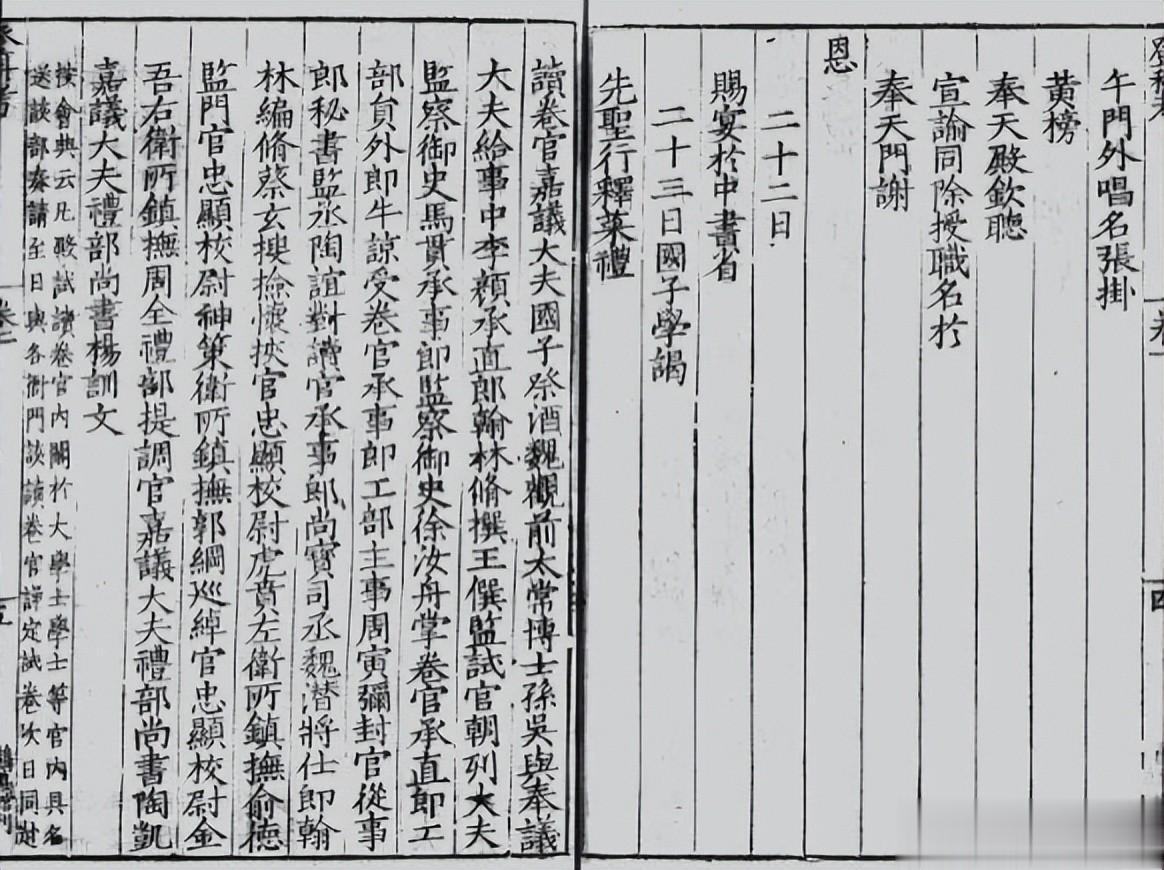 登科考
卷一
四
午門外唱名張掛
黃榜
奉天殿欽聽
宣諭同除授職名於
奉天門謝
恩
二十二日
賜宴於中書省
二十三日國子學謁
先聖行釋菜禮
讀卷官嘉議大夫國子祭酒魏觀前太常博士孫吳與奉議
大夫給事中李顏承直郎翰林脩撰王僎監試官朝列大夫
監察御史馬貫承事郎監察御史徐汝舟掌卷官承直郎工
部員外郎牛諒受卷官承事郎工部主事周寅彌封官從事
郎秘書監丞陶誼對讀官承事郎尚寶司丞魏潛將仕郎翰
林編脩蔡玄搜撿懷挾官忠顯校尉虎賁左衛所鎮撫俞德
監門官忠顯校尉神策衛所鎮撫郭綱巡綽官忠顯校尉金
吾右衛所鎮撫周全禮部提調官嘉議大夫禮部尚書陶凱
嘉議大夫禮部尚書楊訓文
按會典云凡殿試讀卷官內閣於大學士學士等官內具名
送該部奏請至日與各衙門該讀卷官詳定試卷次日同赴
卷一
五